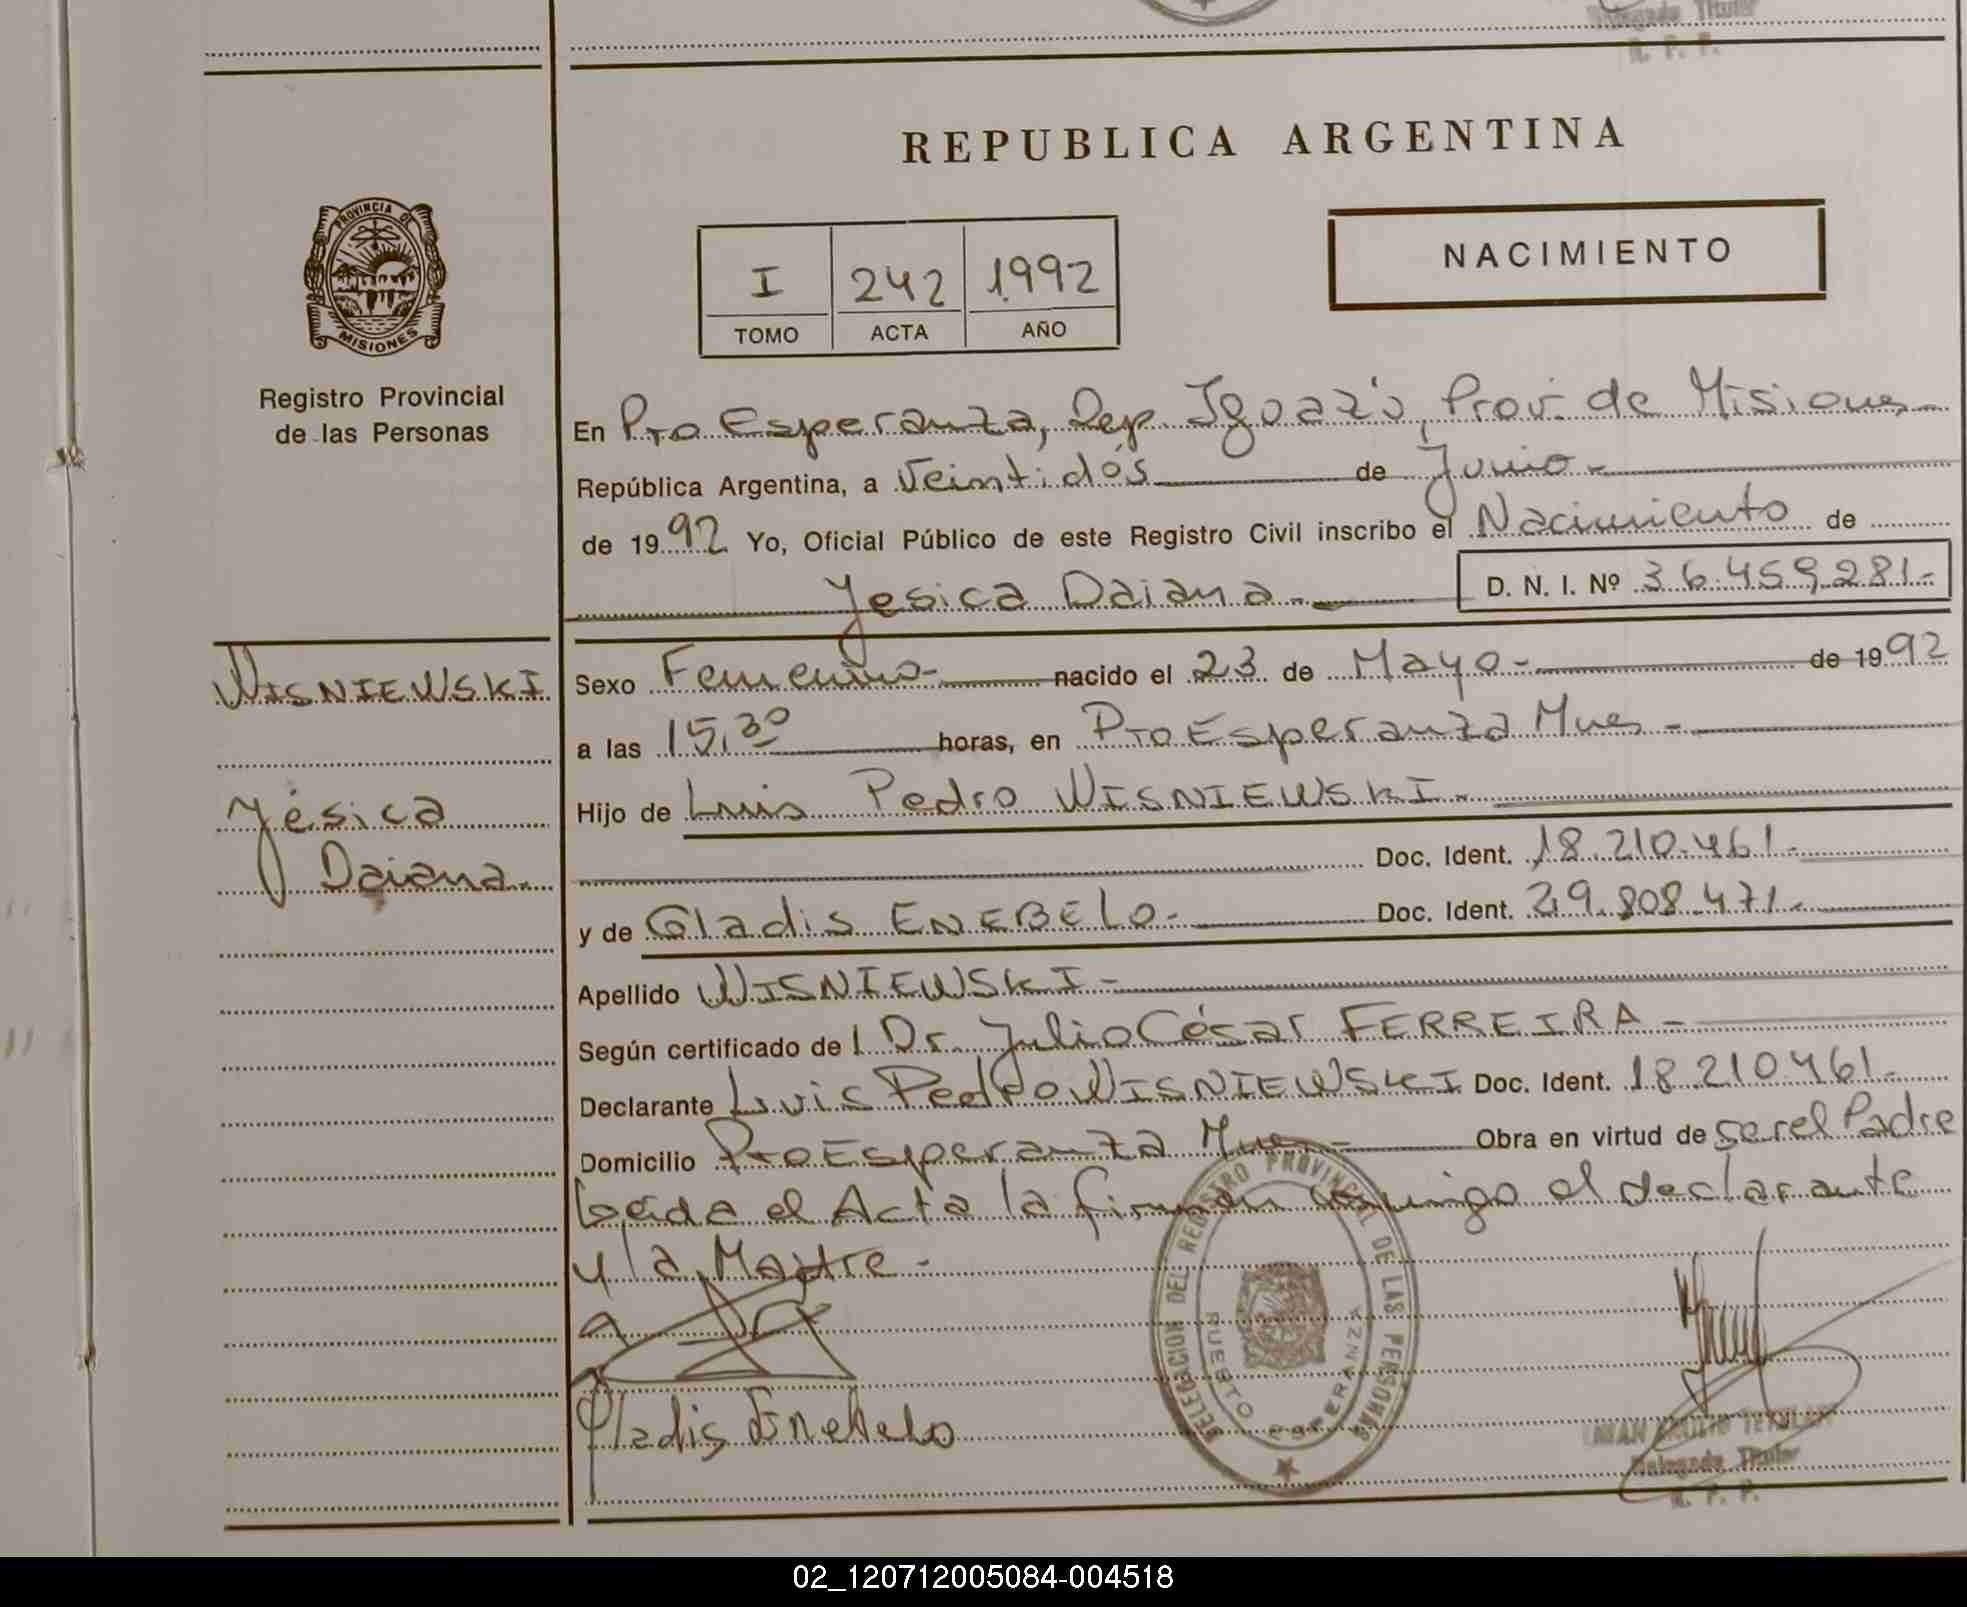 Delegado Titular
R. P. P.
REPUBLICA ARGENTINA
PROVINCIA DE
MISIONES
Registro Provincial
de las Personas
NACIMIENTO
I 242 1992
TOMO ACTA AÑO
En Pto Esperanza, Dep. Iguazú, Prov. de Misiones
República Argentina, a Veintidós de Junio.-
de 1992 Yo, Oficial Público de este Registro Civil inscribo el Nacimiento de
Yesica Daiana.- D. N. I. Nº 36.459.281.-
WISNIEWSKI
Yésica
Daiana.-
Sexo Femenino- nacido el 23 de Mayo.- de 1992
a las 15,30 horas, en Pto Esperanza Mnes-
Hijo de Luis Pedro WISNIEWSKI.-
Doc. Ident. 18.210.461.-
y de Gladis ENEBELO.- Doc. Ident. 29.808.471.-
Apellido WISNIEWSKI-
Según certificado de l Dr. Julio César FERREIRA-
Declarante Luis Pedro WISNIEWSKI Doc. Ident. 18210461.-
Domicilio Pto Esperanza Mnes- Obra en virtud de ser el Padre
Leída el Acta la firman conmigo el declarante
y la Madre.-
Gladis Enebelo
DELEGACION DEL REGISTRO PROVINCIAL DE LAS PERSONAS
PUERTO ESPERANZA
Delegado Titular
R. P. P.
02_120712005084-004518